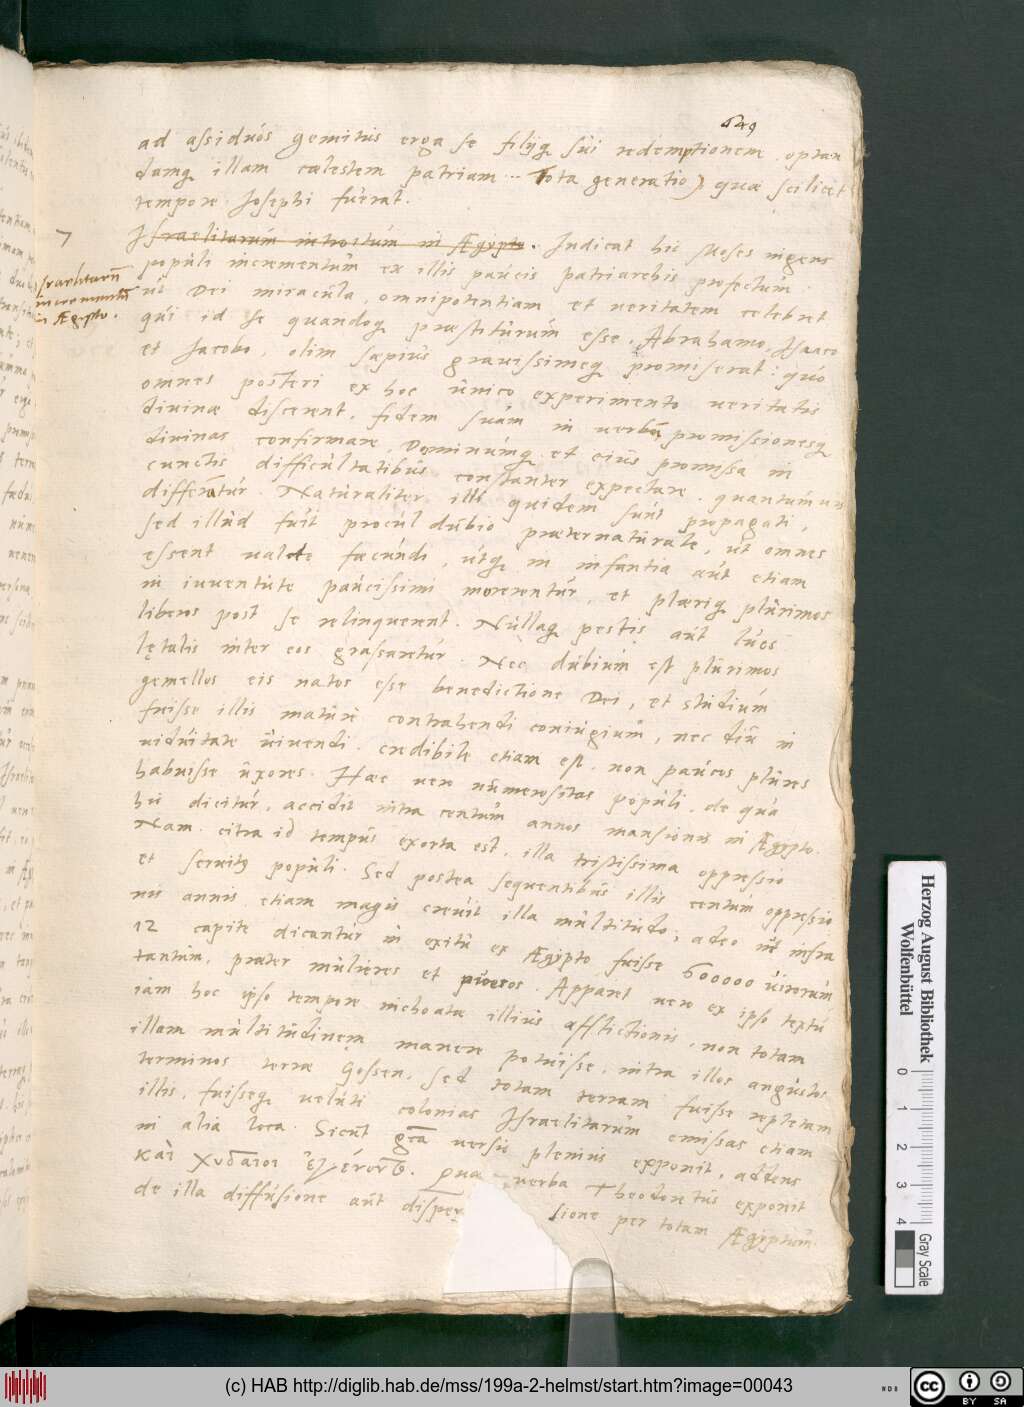 649
ad assiduos gemitus erga se filijq sui redemptionem. optan
damq illam cælestem patriam. Tota generatio) quæ scilicet
tempore Josephi fuerat.
7
Israelitarum incrementum in Ægypto.
Israelitarum in Ægypto. Indicat hic Moses ingens
populi incrementum ex illis paucis patriarchis profectum.
ut Dei miracula, omnipotentiam et veritatem celebret
qui id se quandoq præstiturum esse, Abrahamo, Isaaco
et Jacobo, olim sæpius gravissimeq promiserat: quo
omnes posteri ex hoc unico experimento veritatis
divinæ discerent. fidem suam in verbum promissionesq
divinas confirmare, Dominumq et eius promissa in
cunctis difficultatibus constanter expectare. quantumvis
differatur. Naturaliter illi quidem sunt propagati,
sed illud fuit procul dubio præternaturale, ut omnes
essent valde fæcundi, utq in infantia aut etiam
in iuventute paucissimi morerentur, et plæriq plurimos
liberos post se relinquerent. Nullaq pestis aut lues
lętalis inter eos grassaretur. Nec dubium est plurimos
gemellos eis natos esse benedictione Dei, et studium
fuisse illis mature contrahendi coniugium, nec diu in
viduitate vivendi. credibile etiam est. non paucos plures
habuisse uxores. Hæc vero numerositas populi, de qua
hic dicitur, accidit intra centum annos mansionis in Ægypto.
Nam citra id tempus exorta est, illa tristissima oppressio
et servitus populi. Sed postea sequentibus illis centum oppressio
nis annis etiam magis crevit illa multitudo; adeo ut infra
12 capite dicantur in exitu ex Ægypto fuisse 600000 virorum
tantum, præter mulieres et pueros. Apparet vero ex ipso textu
iam hoc ipso tempore inchoatæ illius afflictionis, non totam
illam multitudinem manere potuisse, intra illos angustos
terminos terræ Gossen, sed totam terram fuisse repletam
illis, fuisseq veluti colonias Israelitarum emissas etiam
in alia loca. Sicut gręca versio plenius exponit, addens
καὶ χυδαῖοι ἐγένοντο. Quæ verba Theodoretus exponit
de illa diffusione aut disper sione per totam Ægyptum.
Herzog August Bibliothek
Wolfenbüttel
0 1 2 3 4
Gray Scale
(c) HAB http://diglib.hab.de/mss/199a-2-helmst/start.htm?image=00043
cc BY SA